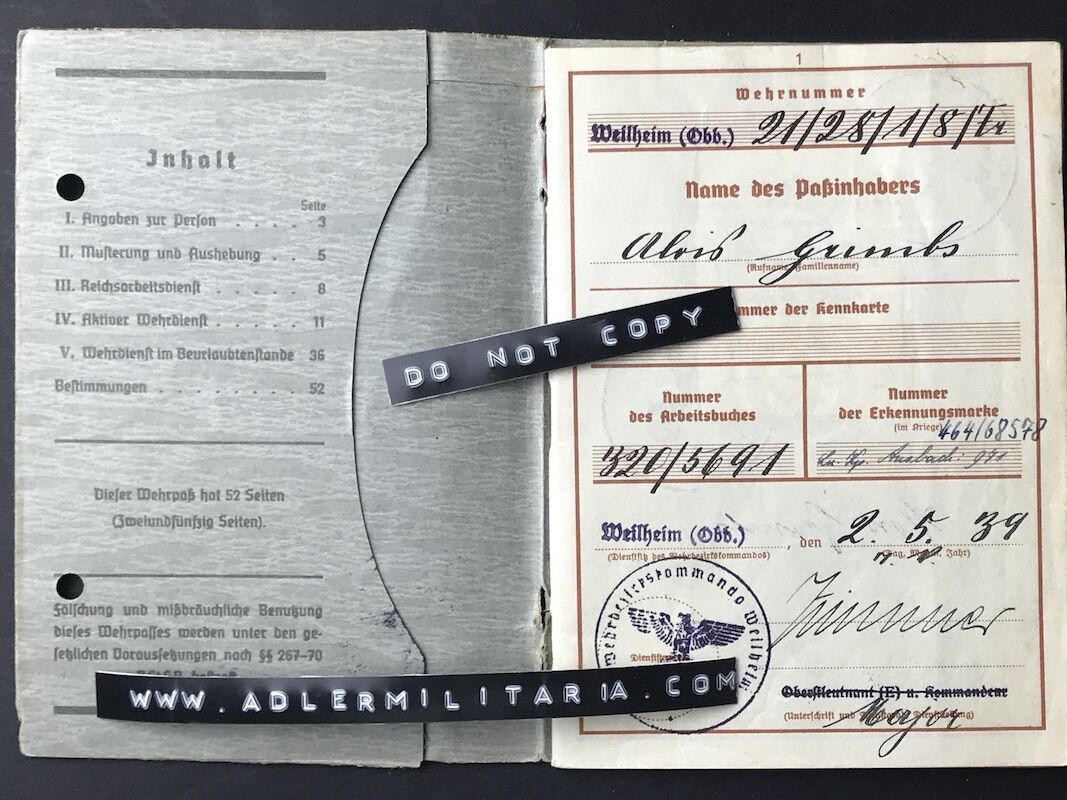 Inhalt
Seite
I. Angaben zur Person . . . . . 3
II. Musterung und Aushebung . . 5
III. Reichsarbeitsdienst . . . . . . 8
IV. Aktiver Wehrdienst . . . . . . 11
V. Wehrdienst im Beurlaubtenstande 36
Bestimmungen . . . . . . . . . 52
Dieser Wehrpaß hat 52 Seiten
(Zweiundfünfzig Seiten).
Fälschung und mißbräuchliche Benutzung
dieses Wehrpasses werden unter den ge-
setzlichen Voraussetzungen nach §§ 267-70
WWW.ADLERMILITARIA.COM
DO NOT COPY
1
Wehrnummer
Weilheim (Obb.) 21/28/1/8/
Name des Paßinhabers
Alois Grimbs
(Rufname, Familienname)
mmer der Kennkarte
Nummer
des Arbeitsbuches
320/5691
Nummer
der Erkennungsmarke
(im Kriege)
464/68578
Weilheim (Obb.), den 2. 5. 39
(Dienstsitz des Wehrbezirkskommandos) (Tag, Monat, Jahr)
Wehrbezirkskommando Weilheim
Oberstleutnant (E) u. Kommandeur
Major
(Unterschrift und Dienststellung)